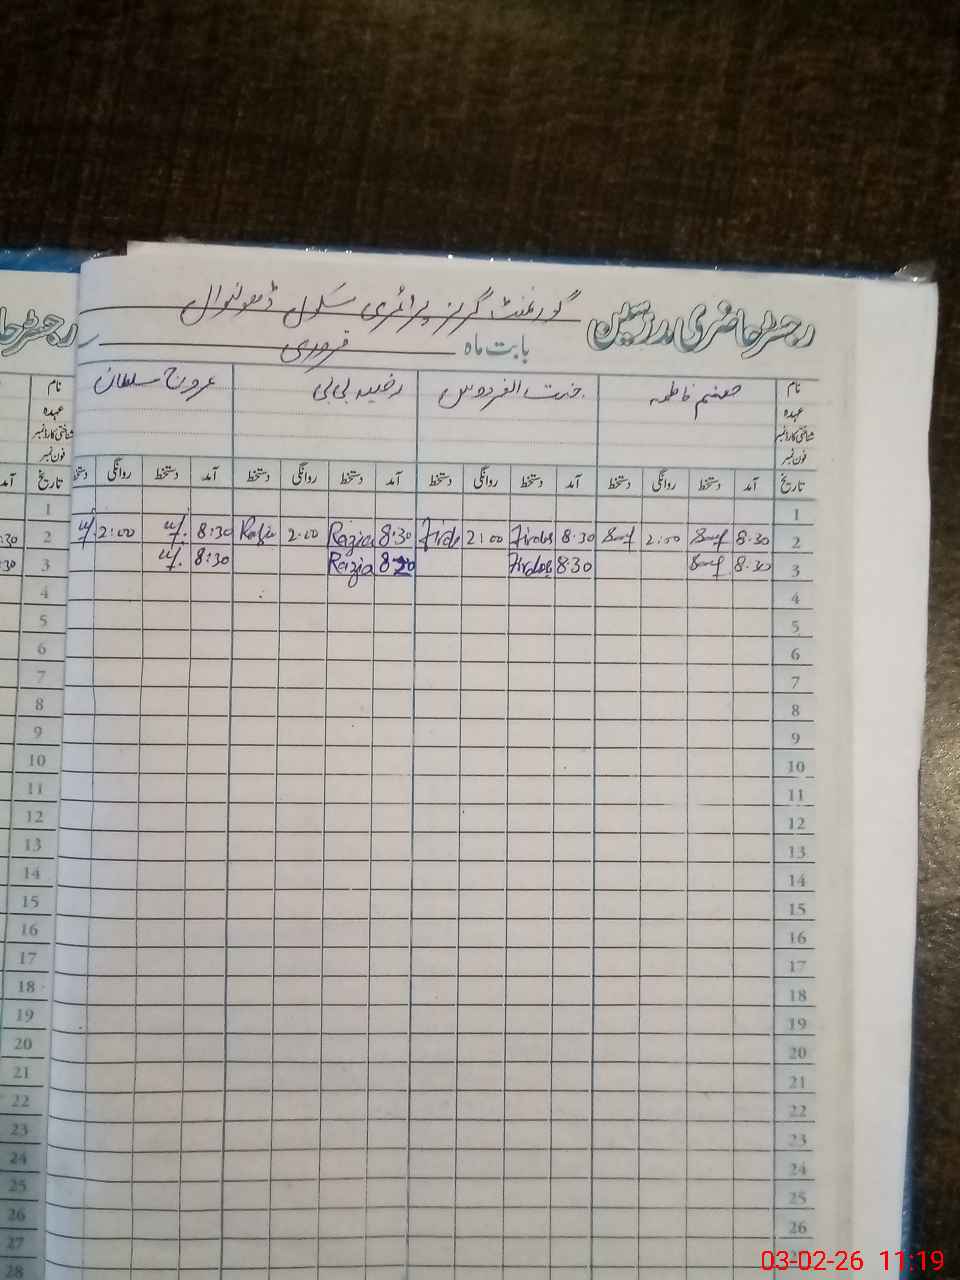 رجسٹر حاضری مدرسین گورنمنٹ گرلز پرائمری سکول ڈھونیوال
بابت ماہ فروری
نام فاطمہ جنت الفردوس رضیہ بی بی عروج سلطان
عہدہ
شناختی کارڈ نمبر
فون نمبر
تاریخ آمد دستخط روانگی دستخط آمد دستخط روانگی دستخط آمد دستخط روانگی دستخط آمد دستخط روانگی دستخط
1
2 8.30 2.00 8.30 Firdos 2:00 8:30 Razia 2.00 Razia 8:30 2:00
3 8.30 Firdos 8.30 Razia 8:30
4
5
6
7
8
9
10
11
12
13
14
15
16
17
18
19
20
21
22
23
24
25
26
رجسٹر حا
نام
عہدہ
شناختی کارڈ نمبر
فون نمبر
تاریخ آمد
1
2 :30
3 :30
4
5
6
7
8
9
10
11
12
13
14
15
16
17
18
19
20
21
22
23
24
25
26
27
28
03-02-26 11:19